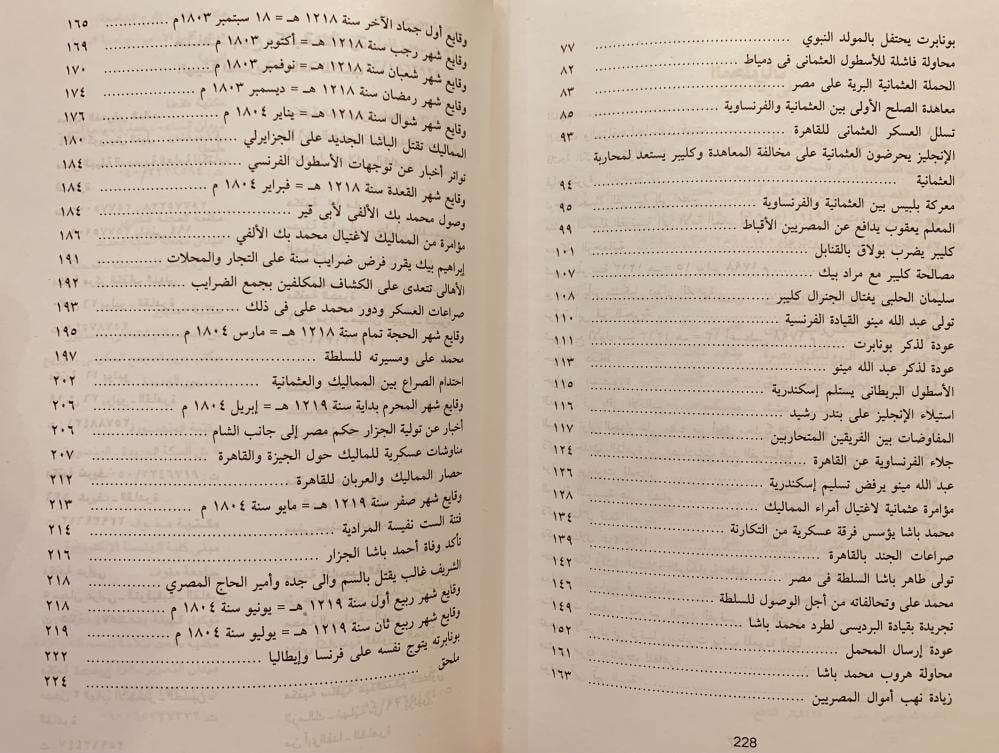 بونابرت يحتفل بالمولد النبوي ٧٧
محاولة فاشلة للأسطول العثمانى فى دمياط ٨٢
الحملة العثمانية البرية على مصر ٨٣
معاهدة الصلح الأولى بين العثمانية والفرنساوية ٨٥
تسلل العسكر العثمانى للقاهرة ٩٣
الإنجليز يحرضون العثمانية على مخالفة المعاهدة وكليبر يستعد لمحاربة
العثمانية ٩٤
معركة بلبيس بين العثمانية والفرنساوية ٩٥
المعلم يعقوب يدافع عن المصريين الأقباط ٩٩
كليبر يضرب بولاق بالقنابل ١٠١
مصالحة كليبر مع مراد بيك ١٠٧
سليمان الحلبى يغتال الجنرال كليبر ١٠٨
تولى عبد الله مينو القيادة الفرنسية ١١٠
عودة لذكر بونابرت ١١١
عودة لذكر عبد الله مينو ١١٣
الأسطول البريطانى يستلم إسكندرية ١١٥
استيلاء الإنجليز على بندر رشيد ١١٦
المفاوضات بين الفريقين المتحاربين ١١٧
جلاء الفرنساوية عن القاهرة ١٢٤
عبد الله مينو يرفض تسليم إسكندرية ١٢٦
مؤامرة عثمانية لاغتيال أمراء المماليك ١٢٨
محمد باشا يؤسس فرقة عسكرية من التكارنة ١٣٤
صراعات الجند بالقاهرة ١٣٩
تولى طاهر باشا السلطة فى مصر ١٤٢
محمد على وتحالفاته من أجل الوصول للسلطة ١٤٦
تجريدة بقيادة البرديسى لطرد محمد باشا ١٤٩
عودة إرسال المحمل ١٥٢
محاولة هروب محمد باشا ١٦١
زيادة نهب أموال المصريين ١٦٣
228
وقايع أول جماد الآخر سنة ١٢١٨ هـ = ١٨ سبتمبر ١٨٠٣م ١٦٥
وقايع شهر رجب سنة ١٢١٨ هـ = أكتوبر ١٨٠٣ م ١٦٩
وقايع شهر شعبان سنة ١٢١٨ هـ = نوفمبر ١٨٠٣ م ١٧٠
وقايع شهر رمضان سنة ١٢١٨ هـ = ديسمبر ١٨٠٣ م ١٧٤
وقايع شهر شوال سنة ١٢١٨ هـ = يناير ١٨٠٤ م ١٧٦
المماليك تقتل الباشا الجديد على الجزايرلي ١٨٠
تواتر أخبار عن توجهات الأسطول الفرنسي ١٨٤
وقايع شهر القعدة سنة ١٢١٨ هـ = فبراير ١٨٠٤ م ١٨٤
وصول محمد بك الألفي لأبى قير ١٨٤
مؤامرة من المماليك لاغتيال محمد بك الألفي ١٨٦
إبراهيم بيك يقرر فرض ضرايب سنة على التجار والمحلات ١٩١
الأهالى تتعدى على الكشاف المكلفين بجمع الضرايب ١٩٢
صراعات العسكر ودور محمد على فى ذلك ١٩٣
وقايع شهر الحجة تمام سنة ١٢١٨ هـ = مارس ١٨٠٤ م ١٩٥
محمد على ومسيرته للسلطة ١٩٧
احتدام الصراع بين المماليك والعثمانية ٢٠٢
وقايع شهر المحرم بداية سنة ١٢١٩ هـ = إبريل ١٨٠٤ م ٢٠٦
أخبار عن تولية الجزار حكم مصر إلى جانب الشام ٢٠٦
مناوشات عسكرية للماليك حول الجيزة والقاهرة ٢٠٧
حصار المماليك والعربان للقاهرة ٢١٢
وقايع شهر صفر سنة ١٢١٩ هـ = مايو سنة ١٨٠٤ م ٢١٣
فتنة الست نفيسة المرادية ٢١٤
تأكد وفاة أحمد باشا الجزار ٢١٦
الشريف غالب يقتل بالسم والى جده وأمير الحاج المصري ٢١٨
وقايع شهر ربيع أول سنة ١٢١٩ هـ = يونيو سنة ١٨٠٤ م ٢١٨
وقايع شهر ربيع ثان سنة ١٢١٩ هـ = يوليو سنة ١٨٠٤ م ٢١٩
بونابرته يتوج نفسه على فرنسا وإيطاليا ٢٢٢
ملحق ٢٢٤